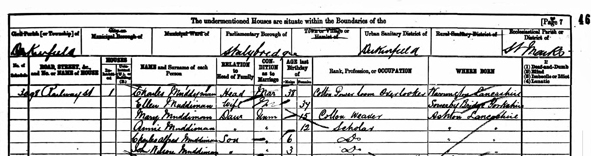 The undermentioned Houses are situate within the Boundaries of the
[Page 7
46
Civil Parish [or Township] of
Municipal Borough of
Municipal Ward of
Parliamentary Borough of
Town or Village or Hamlet of
Urban Sanitary District of
Rural Sanitary District of
Ecclesiastical Parish or District of
Dukinfield
Stalybridge
Dukinfield
St Marks
ROAD, STREET, &c., and No. or NAME of HOUSE
HOUSES
NAME and Surname of each Person
RELATION to Head of Family
CONDITION as to Marriage
AGE last Birthday of
Rank, Profession, or OCCUPATION
WHERE BORN
If
(1) Deaf-and-Dumb
(2) Blind
(3) Imbecile or Idiot
(4) Lunatic
98 Railway St 1 Charles Muddiman Head Mar 38 Cotton Power Loom Overlooker Lancashire
Ellen Muddiman Wife 37 Sowerby Bridge Yorkshire
Mary Muddiman Daur Unm 15 Cotton Weaver Ashton Lancashire
Annie Muddiman " 12 Scholar " "
Charles Alfred Muddiman Son 6 Do " "
Nelson Muddiman " 3 Do " "